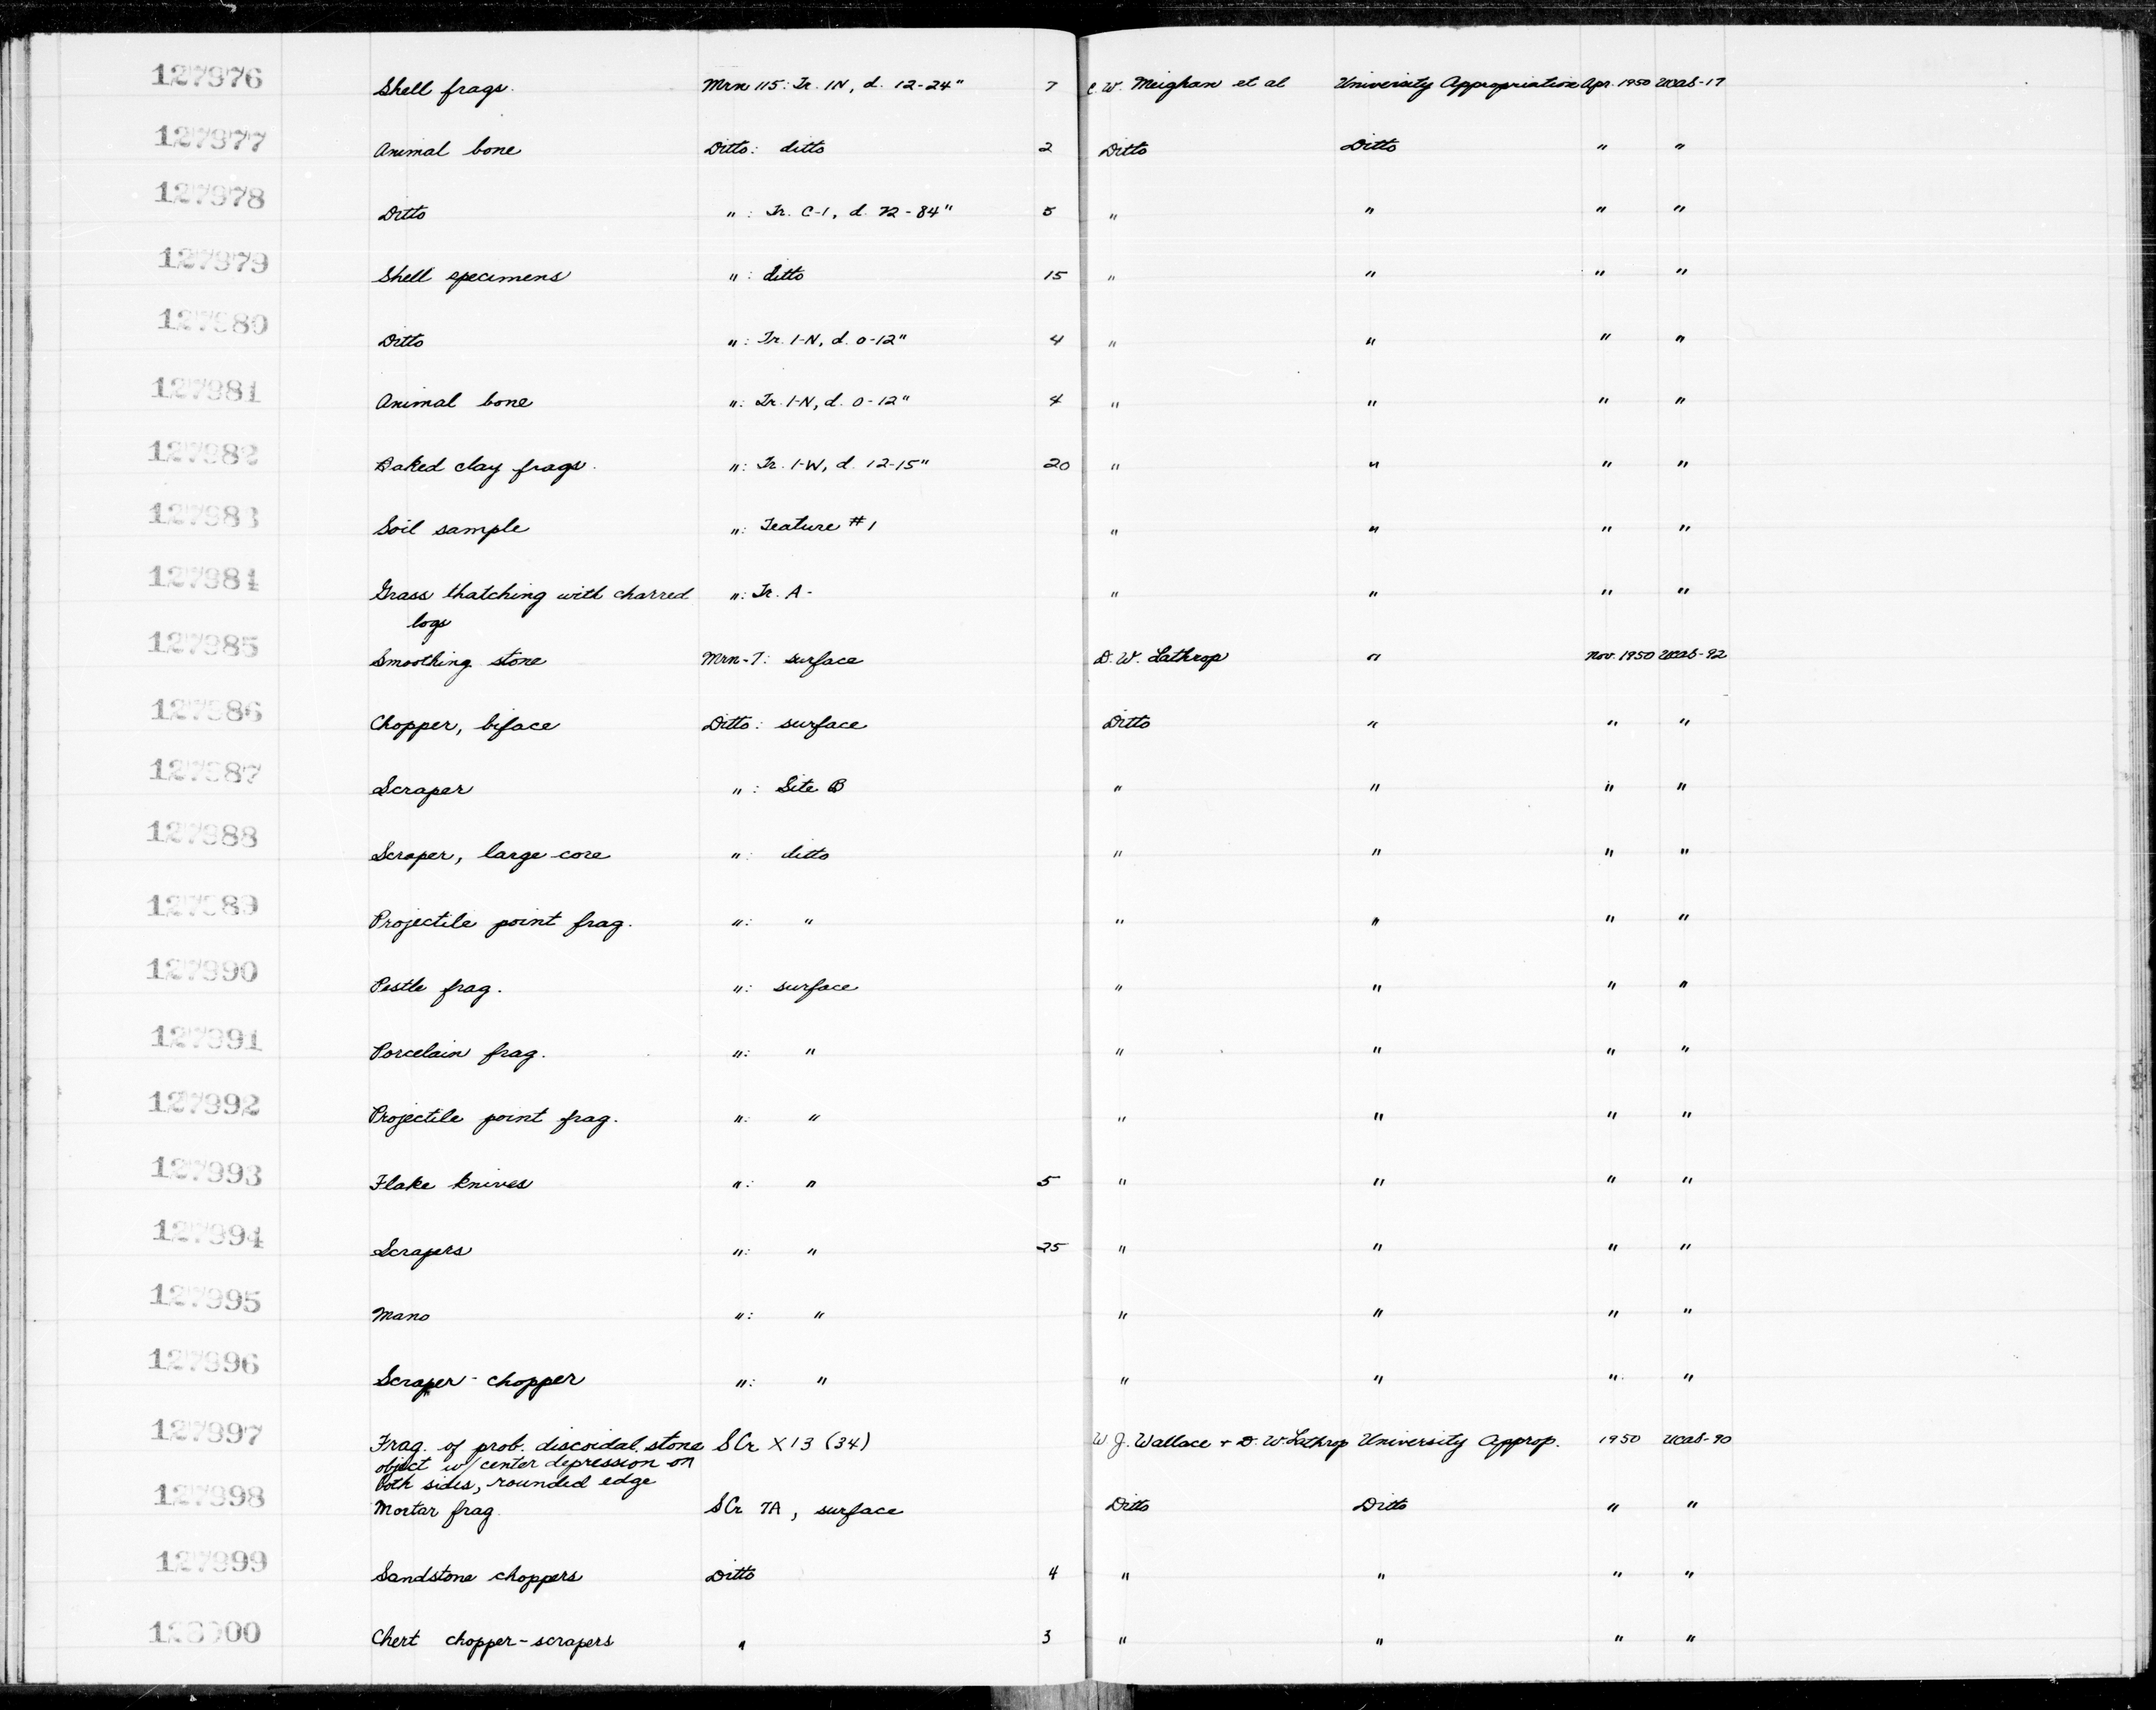 127976 Shell frags. Mrn 115: Tr. 1N, d. 12-24" 7 C.W. Meighan et al University Appropriation Apr. 1950 UCAS-17
127977 Animal bone Ditto: ditto 2 Ditto Ditto " "
127978 Ditto ": Tr. C-1, d. 72-84" 5 " " " "
127979 Shell specimens ": ditto 15 " " " "
127980 Ditto ": Tr. 1-N, d. 0-12" 4 " " " "
127981 Animal bone ": Tr. 1-N, d. 0-12" 4 " " " "
127982 Baked clay frags. ": Tr. 1-W, d. 12-15" 20 " " " "
127983 Soil sample ": Feature #1 " " " "
127984 Grass thatching with charred ": Tr. A- " " " "
logs
127985 Smoothing stone Mrn-7: surface D.W. Lathrop " Nov. 1950 UCAS-92
127986 Chopper, biface Ditto: surface Ditto " " "
127987 Scraper ": Site B " " " "
127988 Scraper, large core ": ditto " " " "
127989 Projectile point frag. ": " " " " "
127990 Pestle frag. ": surface " " " "
127991 Porcelain frag. ": " " " " "
127992 Projectile point frag. ": " " " " "
127993 Flake knives ": " 5 " " " "
127994 Scrapers ": " 25 " " " "
127995 Mano ": " " " " "
127996 Scraper-chopper ": " " " " "
127997 Frag. of prob. discoidal stone SCr X13 (34) W.J. Wallace + D.W. Lathrop University Approp. 1950 UCAS-90
object w/ center depression on
both sides, rounded edge
127998 Mortar frag. SCr 7A, surface Ditto Ditto " "
127999 Sandstone choppers Ditto 4 " " " "
128000 Chert chopper-scrapers " 3 " " " "